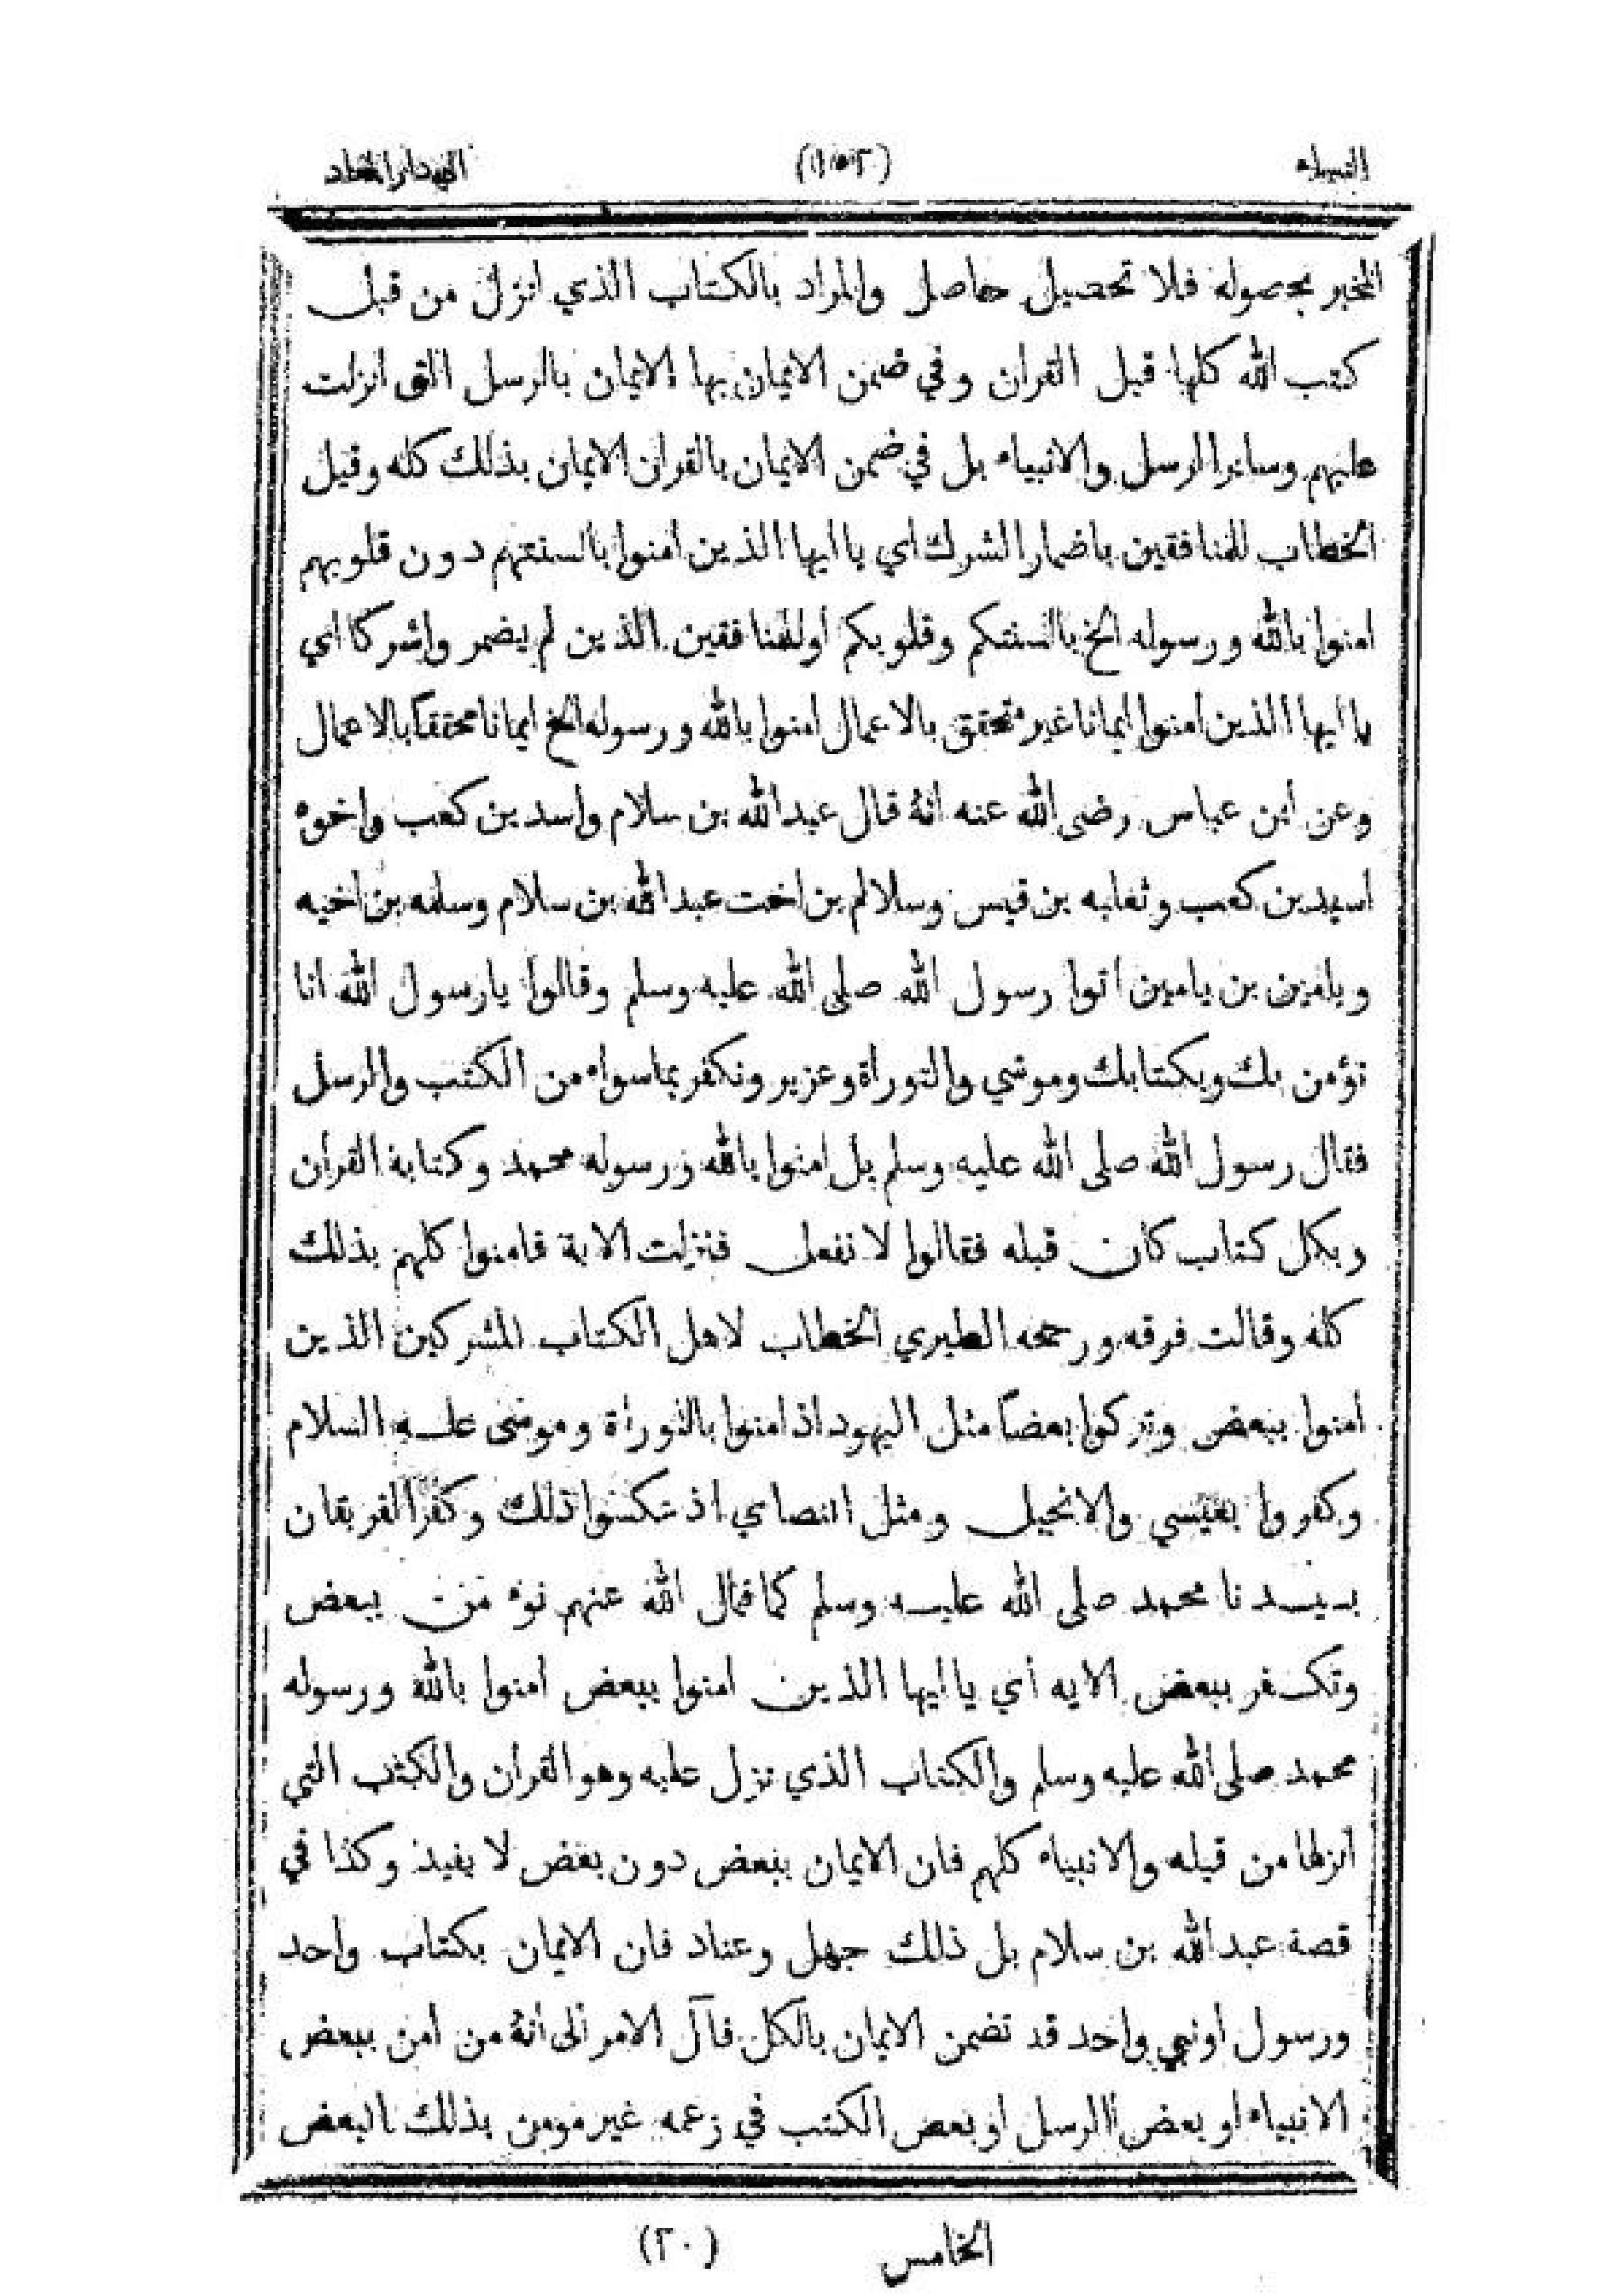 النساء (١٥٢)
المخبر بحصوله فلا تحصيل حاصل والمراد بالكتاب الذي انزل من قبل
كتب الله كلها قبل القران وفي ضمن الايمان بها الايمان بالرسل التى انزلت
عليهم وسائرا الرسل والانبياء بل في ضمن الايمان بالقران الايمان بذلك كله وقيل
الخطاب للمنافقين باضمار الشرك اي يا ايها الذين امنوا بالسنتهم دون قلوبهم
امنوا بالله ورسوله الخ بالسنتكم وقلوبكم اوللمنافقين الذين لم يضمر واشركا اي
يا ايها الذين امنوا ايمانا غير متحقق بالاعمال امنوا بالله ورسوله الخ ايمانا محققا بالاعمال
وعن ابن عباس رضى الله عنه انه قال عبد الله بن سلام واسد بن كعب واخوه
اسيد بن كعب وثعلبه بن قيس وسلالم بن اخت عبد الله بن سلام وسلمه بن اخيه
ويامين بن يامين اتوا رسول الله صلى الله عليه وسلم وقالوا يارسول الله انا
نؤمن بك وبكتابك وموسي والتوراة وعزير ونكفر بماسواه من الكتب والرسل
فقال رسول الله صلى الله عليه وسلم بل امنوا بالله ورسوله محمد وكتابة القران
وبكل كتاب كان قبله فقالوا لا نفعل فنزلت الاية فامنوا كلهم بذلك
كله وقالت فرقه ورجحه الطبري الخطاب لاهل الكتاب المشركين الذين
امنوا ببعض وتركوا بعضاً مثل اليهود اذ امنوا بالتوراة وموسى عليه السلام
وكفروا بعيسي والانجيل ومثل انصاي اذ نكسوا ذلك وكفر الفريقان
بسيدنا محمد صلى الله عليه وسلم كما قال الله عنهم نؤمن ببعض
وتكفر ببعض الايه أي يا ايها الذين امنوا ببعض امنوا بالله ورسوله
محمد صلى الله عليه وسلم والكتاب الذي نزل عليه وهو القران والكتب التي
انزلها من قبله والانبياء كلهم فان الايمان ببعض دون بعض لا يفيد وكذا في
قصة عبد الله بن سلام بل ذلك جهل وعناد فان الايمان بكتاب واحد
ورسول اونبي واحد قد تضمن الايمان بالكل فآل الامر الى أنه من امن ببعض
الانبياء او بعض الرسل او بعض الكتب في زعمه غير مومن بذلك البعض
الخامس (٢٠)